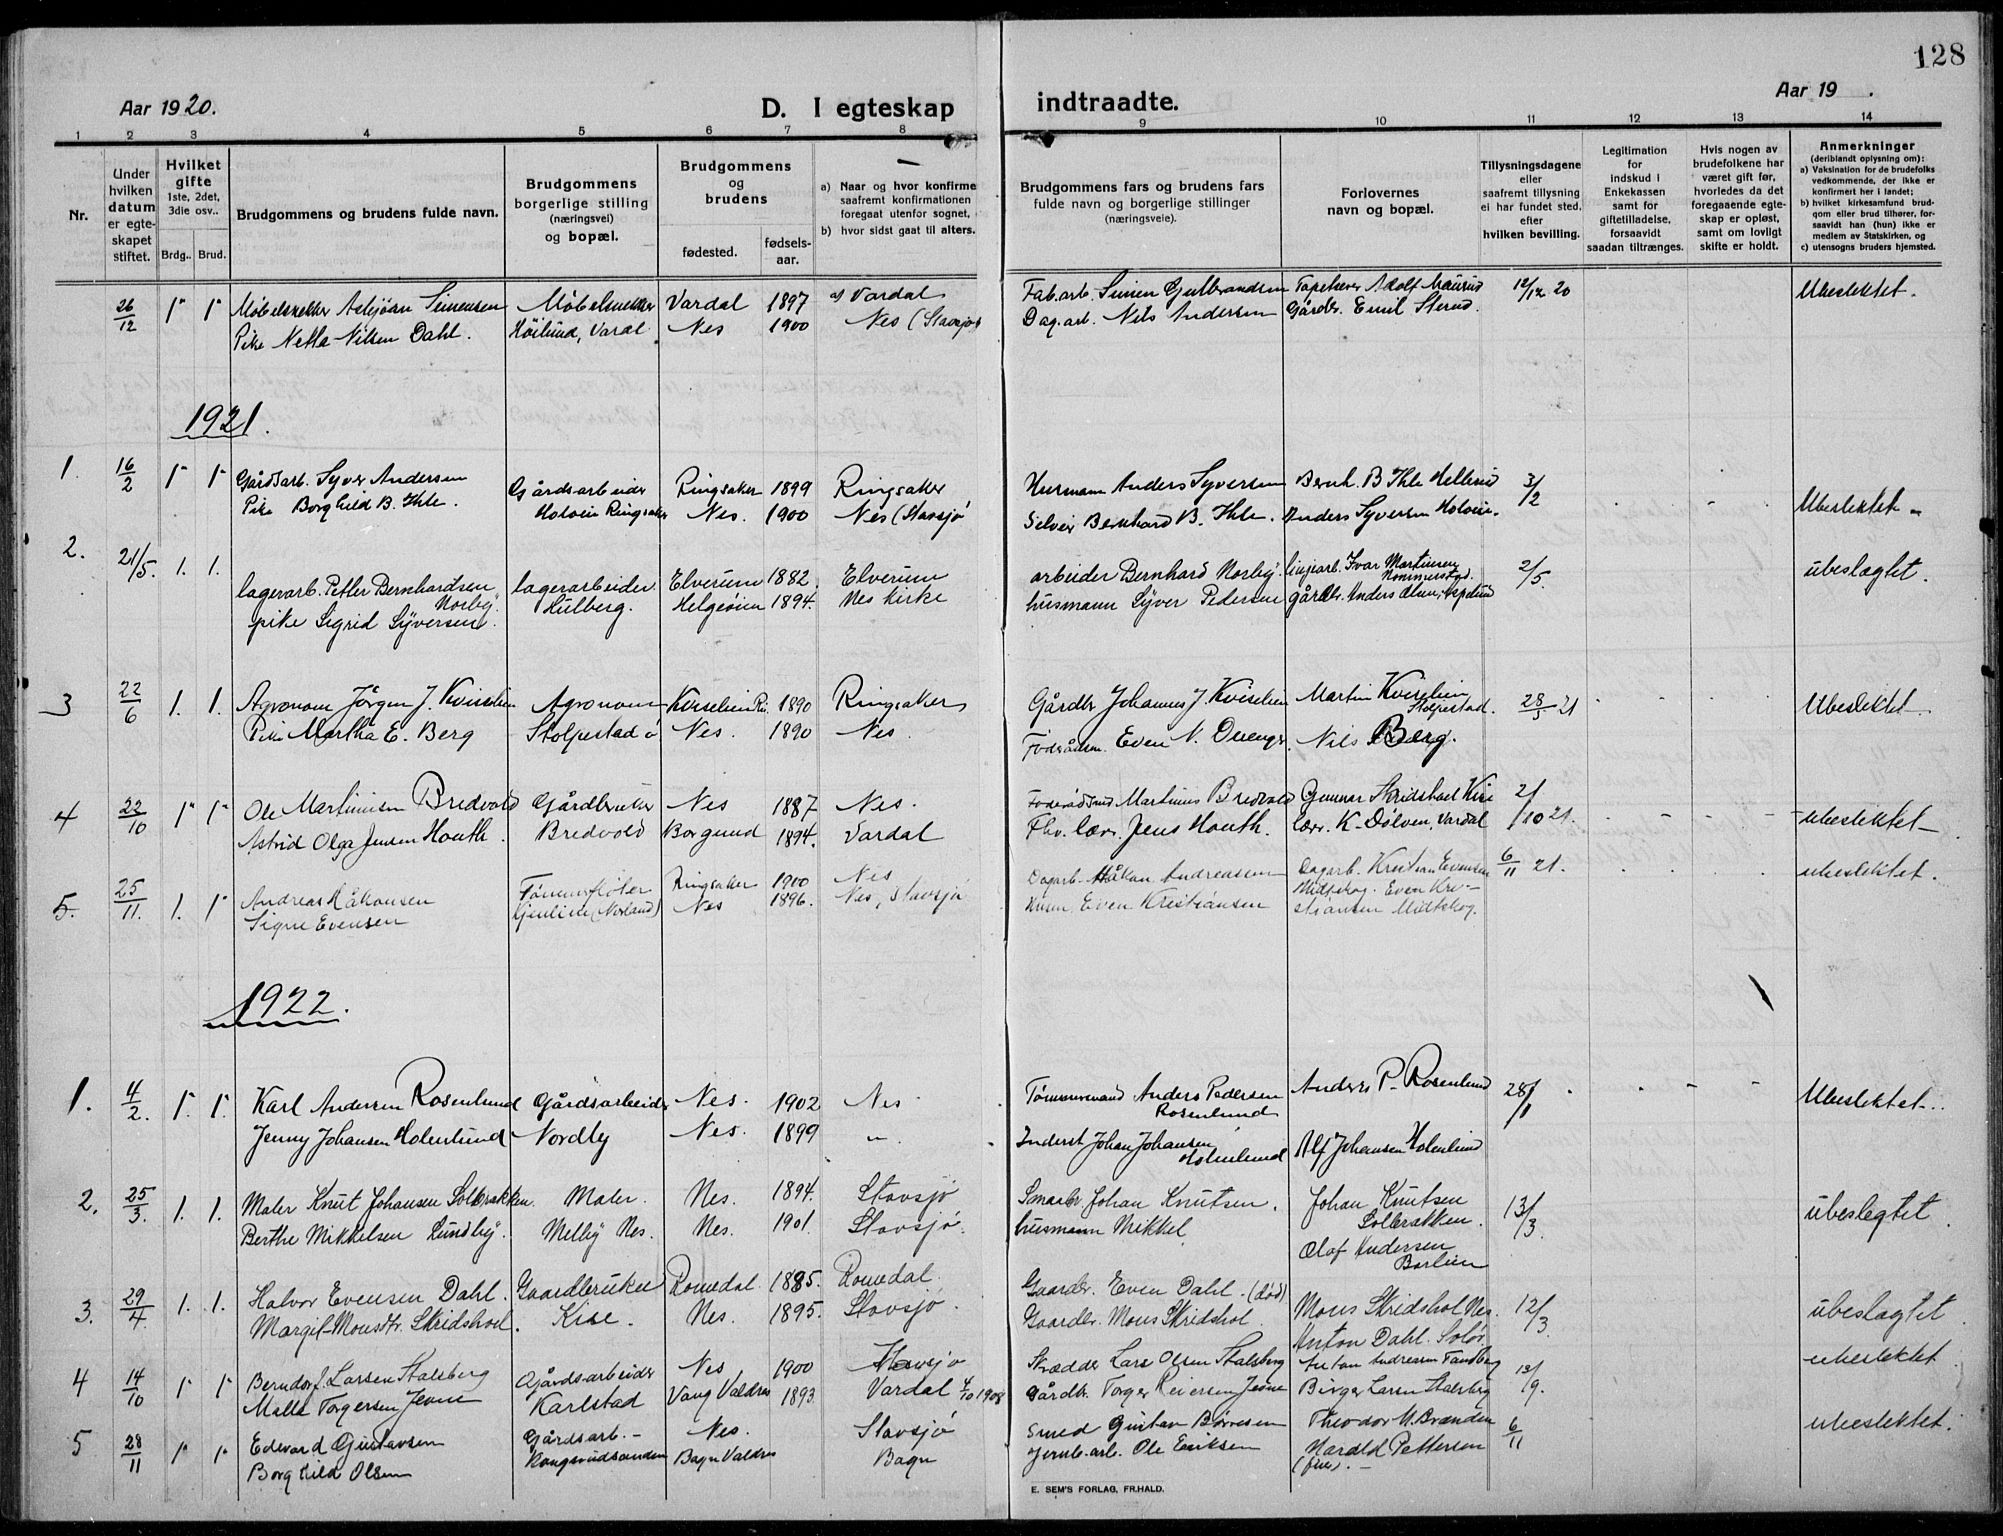 128
Aar 1920.
D. I egteskap indtraadte.
Aar 19 .
1 2 3 4 5 6 7 8 9 10 11 12 13 14
Nr.
Under hvilken datum er egteskapet stiftet.
Hvilket gifte 1ste, 2det, 3die osv..
Brdg.. Brud.
Brudgommens og brudens fulde navn.
Brudgommens borgerlige stilling (næringsvei) og bopæl.
Brudgommens og brudens
fødested. fødselsaar.
a) Naar og hvor konfirme saafremt konfirmationen foregaat utenfor sognet,
b) hvor sidst gaat til alters.
Brudgommens fars og brudens fars fulde navn og borgerlige stillinger (næringsveie).
Forlovernes navn og bopæl.
Tillysningsdagene eller saafremt tillysning ei har fundet sted, efter hvilken bevilling.
Legitimation for indskud i Enkekassen samt for giftetilladelse, forsaavidt saadan tiltrænges.
Hvis nogen av brudefolkene har været gift før, hvorledes da det foregaaende egteskap er opløst, samt om lovligt skifte er holdt.
Anmerkninger (deriblandt oplysning om):
a) Vaksination for de brudefolks vedkommende, der ikke er konfirmert her i landet;
b) hvilket kirkesamfund brudgom eller brud tilhører, forsaavidt han (hun) ikke er medlem av Statskirken, og
c) utensogns bruders hjemsted.
26/12 1 1 Møbelsnekker Asbjørn Simensen Møbelsnekker Vardal 1897 a) Vardal Fab.arb. Simen Gulbrandsen Tapetserer Adolf 12/12 20 Ubeslektet.
Pike Netta Nilsen Dahl. Høilund, Vardal Nes 1900 Nes (Stavsjø) Dag.arb. Nils Andersen Gårdbr. Emil Sterud.
1921.
1. 16/2 1 1 Gårdsarb. Syver Andersen Gårdsarbeider Ringsaker 1899 Ringsaker Husmann Anders Syversen Bernh. B Ihle Hellerud 3/2 Ubeslektet
Pike Borghild B. Ihle. Holoien Ringsaker Nes. 1900 Nes (Stavsjø Selveier Bernhard B. Ihle. Anders Syversen Holoien.
2. 21/5. 1. 1. lagerarb. Petter Bernhardsen Norby, lagerarbeider Elverum 1882. Elverum arbeider Bernhard Norby. linjearb. Ivar Martinsen 2/5 ubeslagtet.
pike Sigrid Syversen. Hulberg. Helgeøien 1894. Nes kirke husmann Syver Pedersen gårdbr. Anders Olsen, Aspelund
3 22/6 1. 1. Agronom Jörgen J. Kviselien Agronom Kviselien Ri. 1890 Ringsaker Gårdbr Johannes J. Kviselien Martin Kviselien Stolpestad. 28/5 21 Ubeslektet
Pike Martha E. Berg Stolpestad Nes. 1890 Nes. Föderådsm. Even N. Nils Berg.
4 22/10 1 1 Ole Martinsen Bredvold Gårdbruker Nes 1887 Nes. Föderådsmd Martinus Bredvold Gunnar Skridshol Kise 2/10 21. ubeslektet
Astrid Olga Jensen Houth. Bredvold Borgund 1894. Vardal Fhv. lær. Jens Houth. lær. K. Dølven, Vardal
5. 25/11. 1. 1 Andreas Håkonsen Tømmerfløter Ringsaker 1900 Nes Dagarb. Håkon Andreassen Dagarb. Kristian Evensen 6/11 21. ubeslektet.
Signe Evensen Gjulien (Norland) Nes 1896. Nes, Stavsjø Husm. Even Kristiansen Midtskog. Even Kristiansen Midtskog.
1922.
1. 4/2. 1. 1. Karl Andersen Rosenlund Gårdsarbeider Nes. 1902 Nes Tømmermand Anders Pedersen Rosenlund Anders P. Rosenlund 28/1 Ubeslektet..
Jenny Johansen Holenlund Nordby Nes. 1899 " Inderst Johan Johansen Holenlund Alf Johansen Holenlund
2. 25/3. 1. 1. Maler Knut Johansen Solbrækken. Maler. Nes. 1894. Stavsjø Johan Knutsen. Johan Knutsen Solbrækken. 13/3. ubeslegtet.
Berthe Mikkelsen Lundby. Melby Nes. Nes. 1901. Stavsjø. husmann Mikkel Olaf Andersen Borlien
3. 29/4. 1. 1. Halvor Evensen Dahl. Gaardbruker Romedal 1885. Romedal. Gaardbr. Even Dahl. (død) Mons Skridshol Nes. 12/3. ubeslagtet
Margit Monsdtr. Skridshol. Kise. Nes. 1895. Stavsjø. Gaardbr. Mons Skridshol. Anton Dahl. Solør.
4 14/10 1 1 Berndorf Larsen Stalsberg Gårdsarbeider Nes 1900 Stavsjø Skrædder Lars Olsen Stalsberg Anton Andresen Tandberg 13/9. ubeslektet
Malla Torgersen Jevne Karlstad Vang Valdres 1893. Vardal 4/10 1908 Gårdb. Torger Reiersen Jevne Birger Larsen Stalsberg
5 28/11 1 1 Edvard Gustavsen Gårdsarb. Nes. Stavsjø Smed Gustav Børresen Theodor M. Brænden 6/11 ubeslektet.
Borghild Olsen Kongsrudsanden Bagn Valdres Bagn Jernb.arb. Ole Eriksen Harald Pettersen
E. SEM'S FORLAG, FR.HALD.